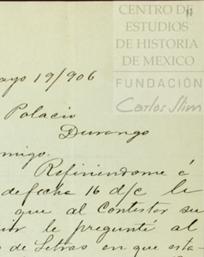 CENTRO DE
ESTUDIOS
DE HISTORIA
DE MEXICO
FUNDACIÓN
Carlos Slim
ayo 19/906
Palacio
Durango
migo.
Refiriendome á
de fecha 16 d/c le
que al Contestar su
le pregunté al
de Letras en que esta-